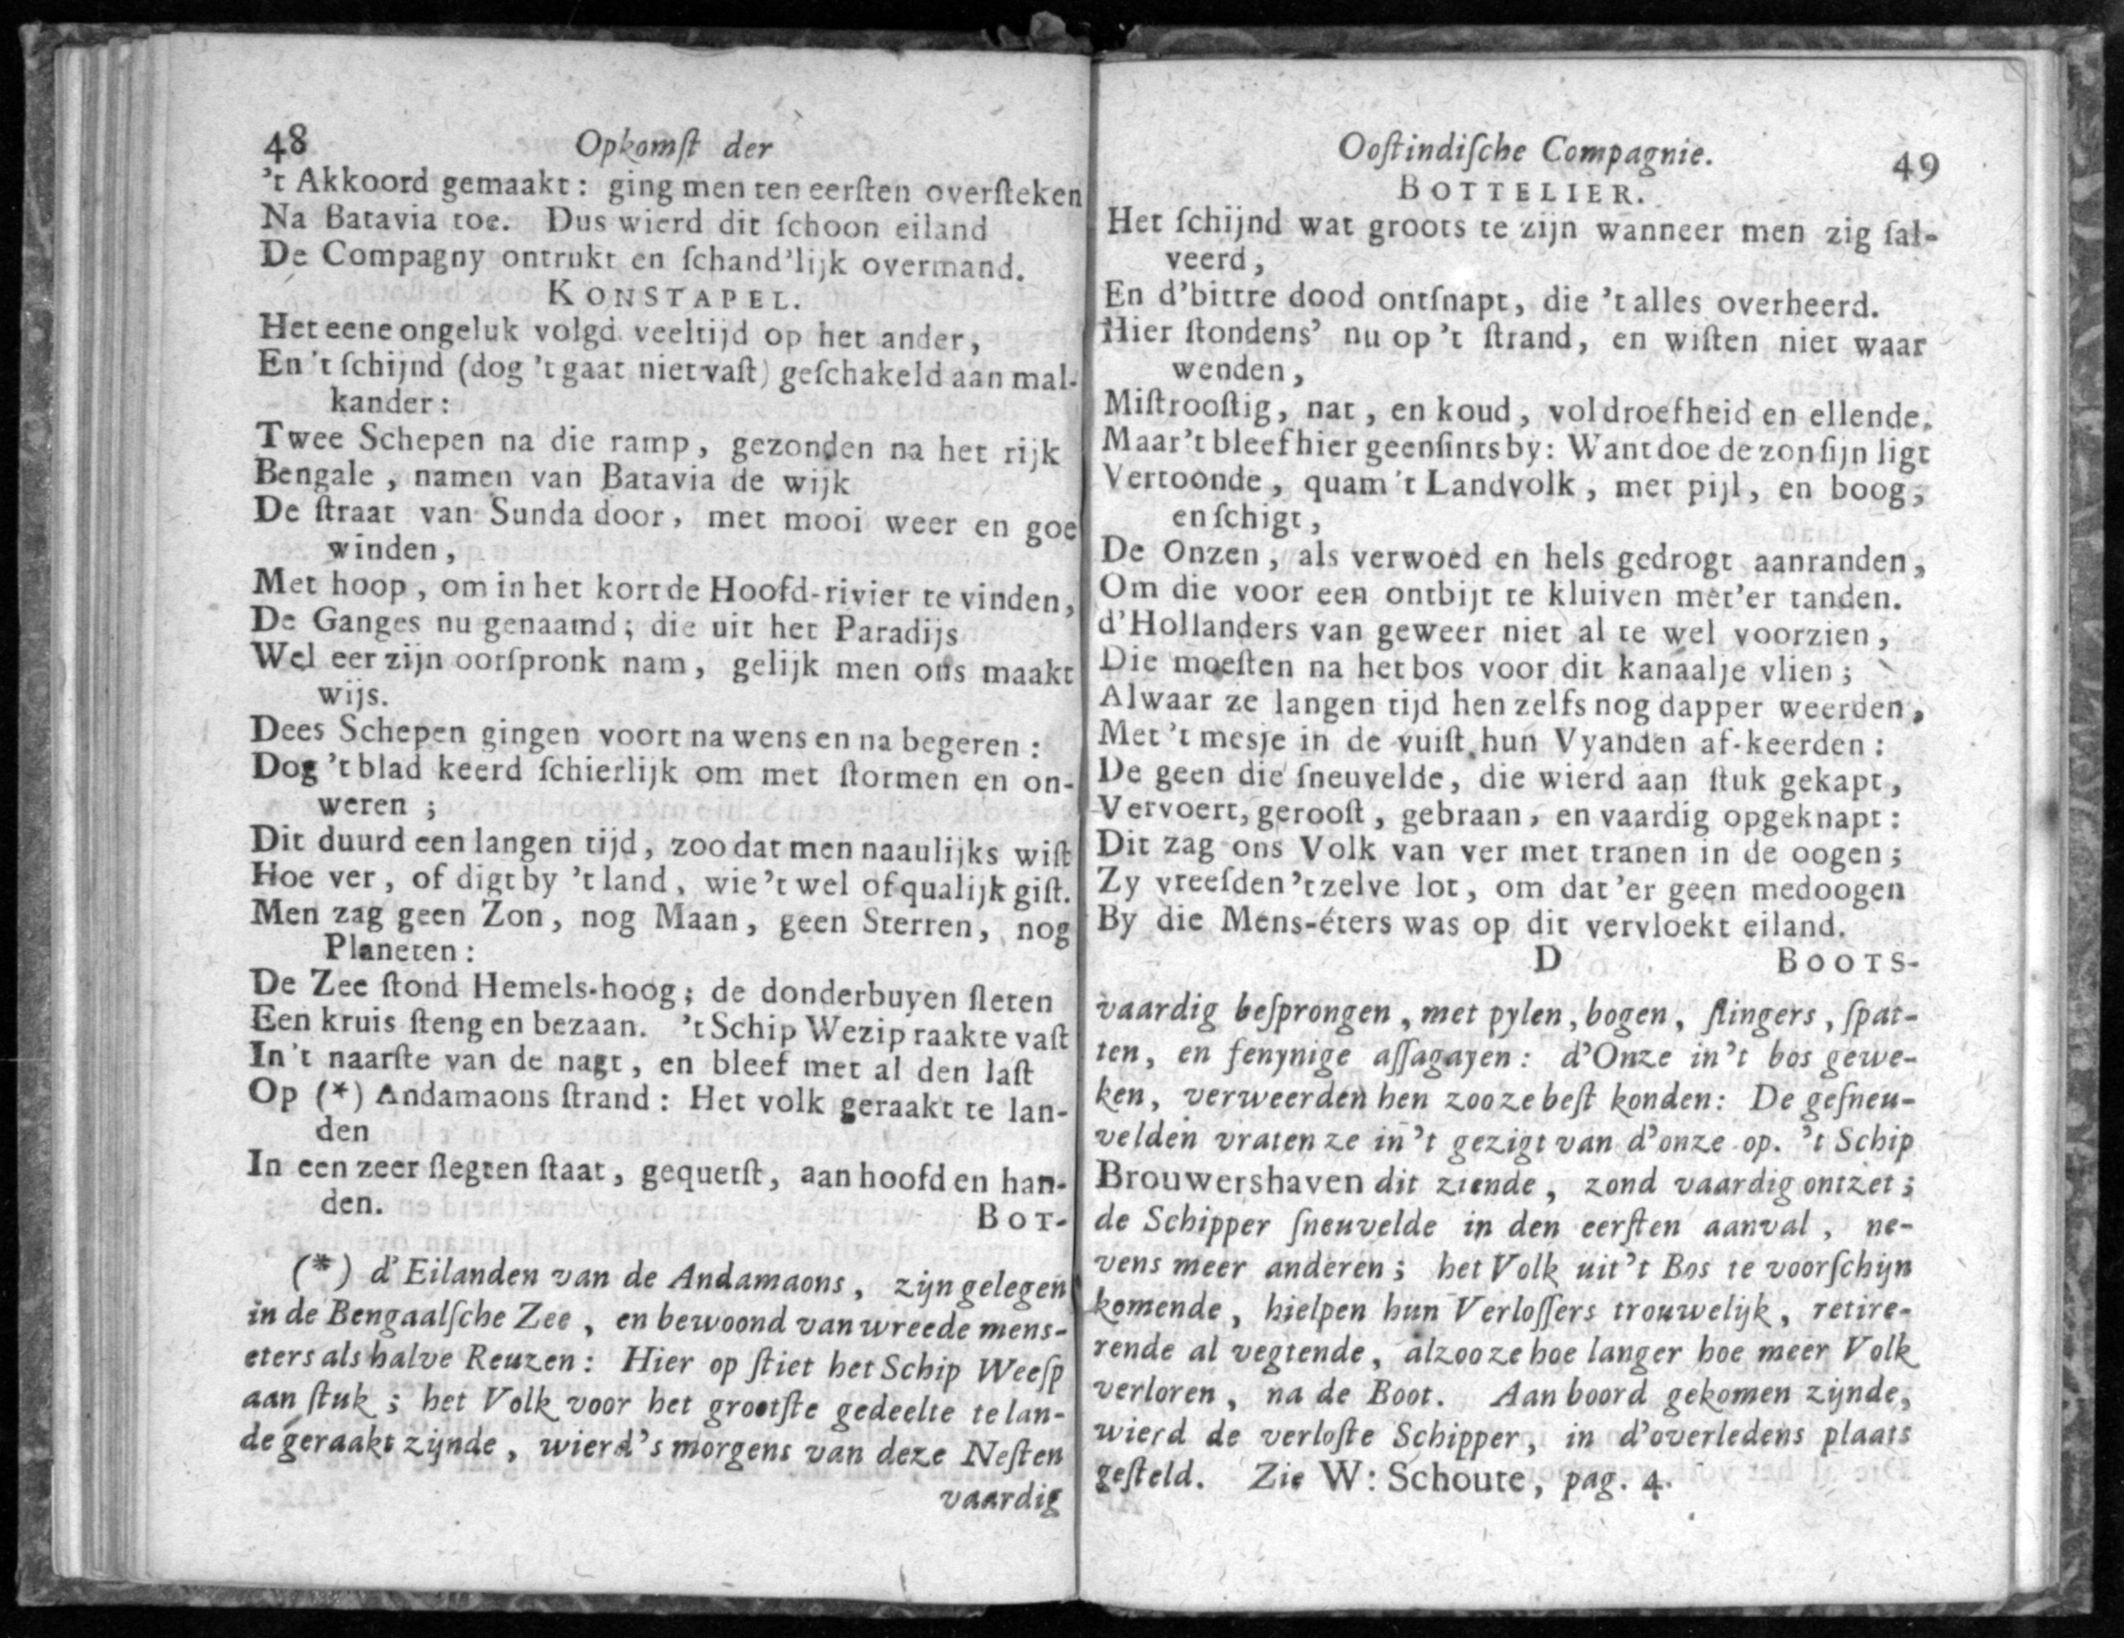 48 Opkomſt der
't Akkoord gemaakt: ging men ten eerſten overſteken
Na Batavia toe. Dus wierd dit ſchoon eiland
De Compagny ontrukt en ſchand'lijk overmand.
KONSTAPEL.
Het eene ongeluk volgd veeltijd op het ander,
En 't ſchijnd (dog 't gaat niet vaſt) geſchakeld aan mal-
kander:
Twee Schepen na die ramp, gezonden na het rijk
Bengale, namen van Batavia de wijk
De ſtraat van Sunda door, met mooi weer en goe
winden,
Met hoop, om in het kort de Hoofd-rivier te vinden,
De Ganges nu genaamd; die uit het Paradijs
Wel eer zijn oorſpronk nam, gelijk men ons maakt
wijs.
Dees Schepen gingen voort na wens en na begeren:
Dog 't blad keerd ſchierlijk om met ſtormen en on-
weren;
Dit duurd een langen tijd, zoo dat men naaulijks wiſt
Hoe ver, of digt by 't land, wie 't wel of qualijk giſt.
Men zag geen Zon, nog Maan, geen Sterren, nog
Planeten:
De Zee ſtond Hemels-hoog; de donderbuyen ſleten
Een kruis ſteng en bezaan. 't Schip Wezip raakte vaſt
In 't naarſte van de nagt, en bleef met al den laſt
Op (*) Andamaons ſtrand: Het volk geraakt te lan-
den
In een zeer ſlegten ſtaat, gequetſt, aan hoofd en han-
den.
BOT-
(*) d'Eilanden van de Andamaons, zijn gelegen
in de Bengaalſche Zee, en bewoond van wreede mens-
eters als halve Reuzen: Hier op ſtiet het Schip Weeſp
aan ſtuk; het Volk voor het grootſte gedeelte te lan-
de geraakt zijnde, wierd 's morgens van deze Neſten
vaardig
Ooſtindiſche Compagnie. 49
BOTTELIER.
Het ſchijnd wat groots te zijn wanneer men zig ſal-
veerd,
En d'bittre dood ontſnapt, die 't alles overheerd.
Hier ſtondens' nu op 't ſtrand, en wiſten niet waar
wenden,
Miſtrooſtig, nat, en koud, vol droefheid en ellende.
Maar 't bleef hier geenſints by: Want doe de zon ſijn ligt
Vertoonde, quam 't Landvolk, met pijl, en boog,
en ſchigt,
De Onzen, als verwoed en hels gedrogt aanranden,
Om die voor een ontbijt te kluiven met'er tanden.
d'Hollanders van geweer niet al te wel voorzien,
Die moeſten na het bos voor dit kanaalje vlien;
Alwaar ze langen tijd hen zelfs nog dapper weerden,
Met 't mesje in de vuiſt hun Vyanden af-keerden:
De geen die ſneuvelde, die wierd aan ſtuk gekapt,
Vervoert, gerooſt, gebraan, en vaardig opgeknapt:
Dit zag ons Volk van ver met tranen in de oogen;
Zy vreeſden 't zelve lot, om dat 'er geen medoogen
By die Mens-éters was op dit vervloekt eiland.
D BOOTS-
vaardig beſprongen, met pylen, bogen, ſlingers, ſpat-
ten, en fenynige aſſagayen: d'Onze in 't bos gewe-
ken, verweerden hen zoo ze beſt konden: De geſneu-
velden vraten ze in 't gezigt van d'onze op. 't Schip
Brouwershaven dit ziende, zond vaardig ontzet;
de Schipper ſneuvelde in den eerſten aanval, ne-
vens meer anderen; het Volk uit 't Bos te voorſchijn
komende, hielpen hun Verloſſers trouwelijk, retire-
rende al vegtende, alzoo ze hoe langer hoe meer Volk
verloren, na de Boot. Aan boord gekomen zijnde,
wierd de verloſte Schipper, in d'overledens plaats
geſteld. Zie W: Schoute, pag. 4.